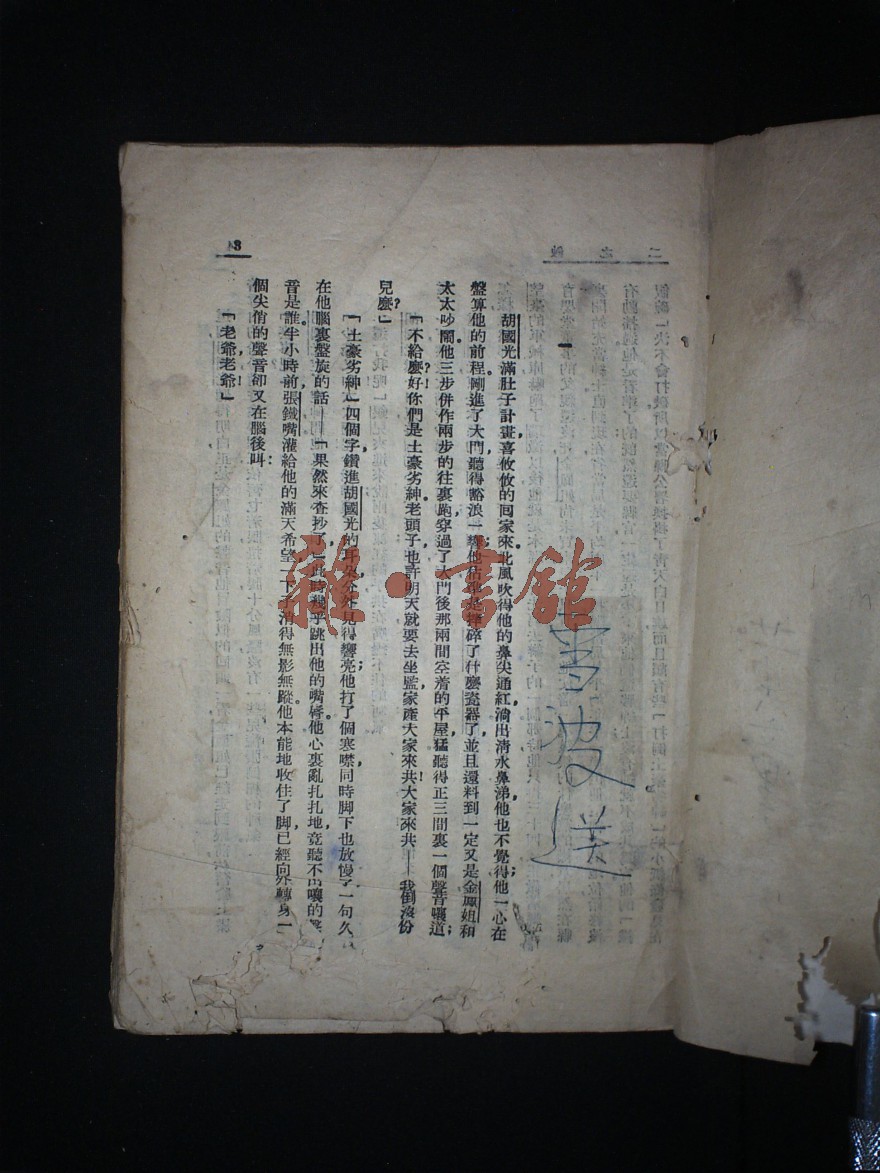 一
胡國光滿肚子計畫喜攸攸的回家來北風吹得他的鼻尖通紅，淌出清水鼻涕，他也不覺得；他一心在
盤算他的前程。剛進了大門，聽得豁浪一響，他估量是摔碎了什麼瓷器了，並且還料到一定又是金鳳姐和
太太吵鬧。他三步併作兩步的往裏跑，穿過了大門後那兩間空着的平屋，猛聽得正三間裏一個聲音嚷道：
「不給麼？好！你們是土豪劣紳。老頭子也許明天就要去坐監，家產大家來共大家來共——我倒沒份
兒麼？」
「土豪劣紳」四個字，鑽進胡國光的耳朵分外見得響亮；他打了個寒噤，同時脚下也放慢了一句久
在他腦裏盤旋的話——「果然來查抄了，」此時幾乎跳出他的嘴唇。他心裏亂扎扎地，竟聽不出嚷的聲
音是誰。半小時前，張鐵嘴灌給他的滿天希望，一下子消得無影無蹤。他本能地收住了脚，已經向外轉身，一
個尖俏的聲音卻又在腦後叫：
「老爺，老爺！」
3
雪波送
雜·書館